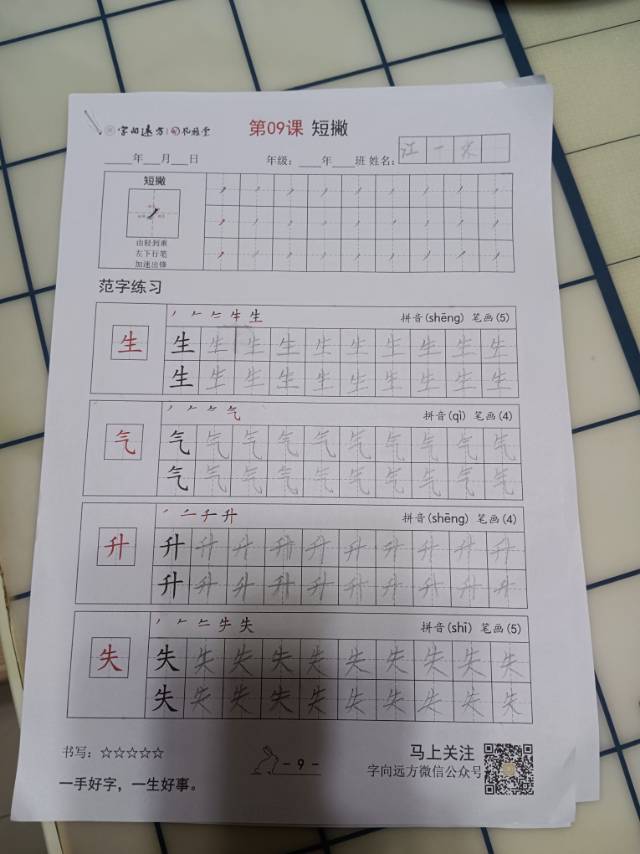 字向远方 第09课 短撇
年 月 日 年级： 年 班 姓名： 江一
短撇
由轻到重
左下行笔
加速出锋
范字练习
生 丿 𠂉 生 拼音(shēng) 笔画(5)
生 生 生 生 生 生 生 生 生 生
生 生 生 生 生 生 生 生 生 生
气 丿 𠂉 气 拼音(qì) 笔画(4)
气 气 气 气 气 气 气 气 气 气
气 气 气 气 气 气 气 气 气 气
升 丿 千 升 拼音(shēng) 笔画(4)
升 升 升 升 升 升 升 升 升 升
升 升 升 升 升 升 升 升 升 升
失 丿 𠂉 失 拼音(shī) 笔画(5)
失 失 失 失 失 失 失 失 失 失
失 失 失 失 失 失 失 失 失 失
书写：☆☆☆☆☆ - 9 - 马上关注
一手好字，一生好事。 字向远方微信公众号